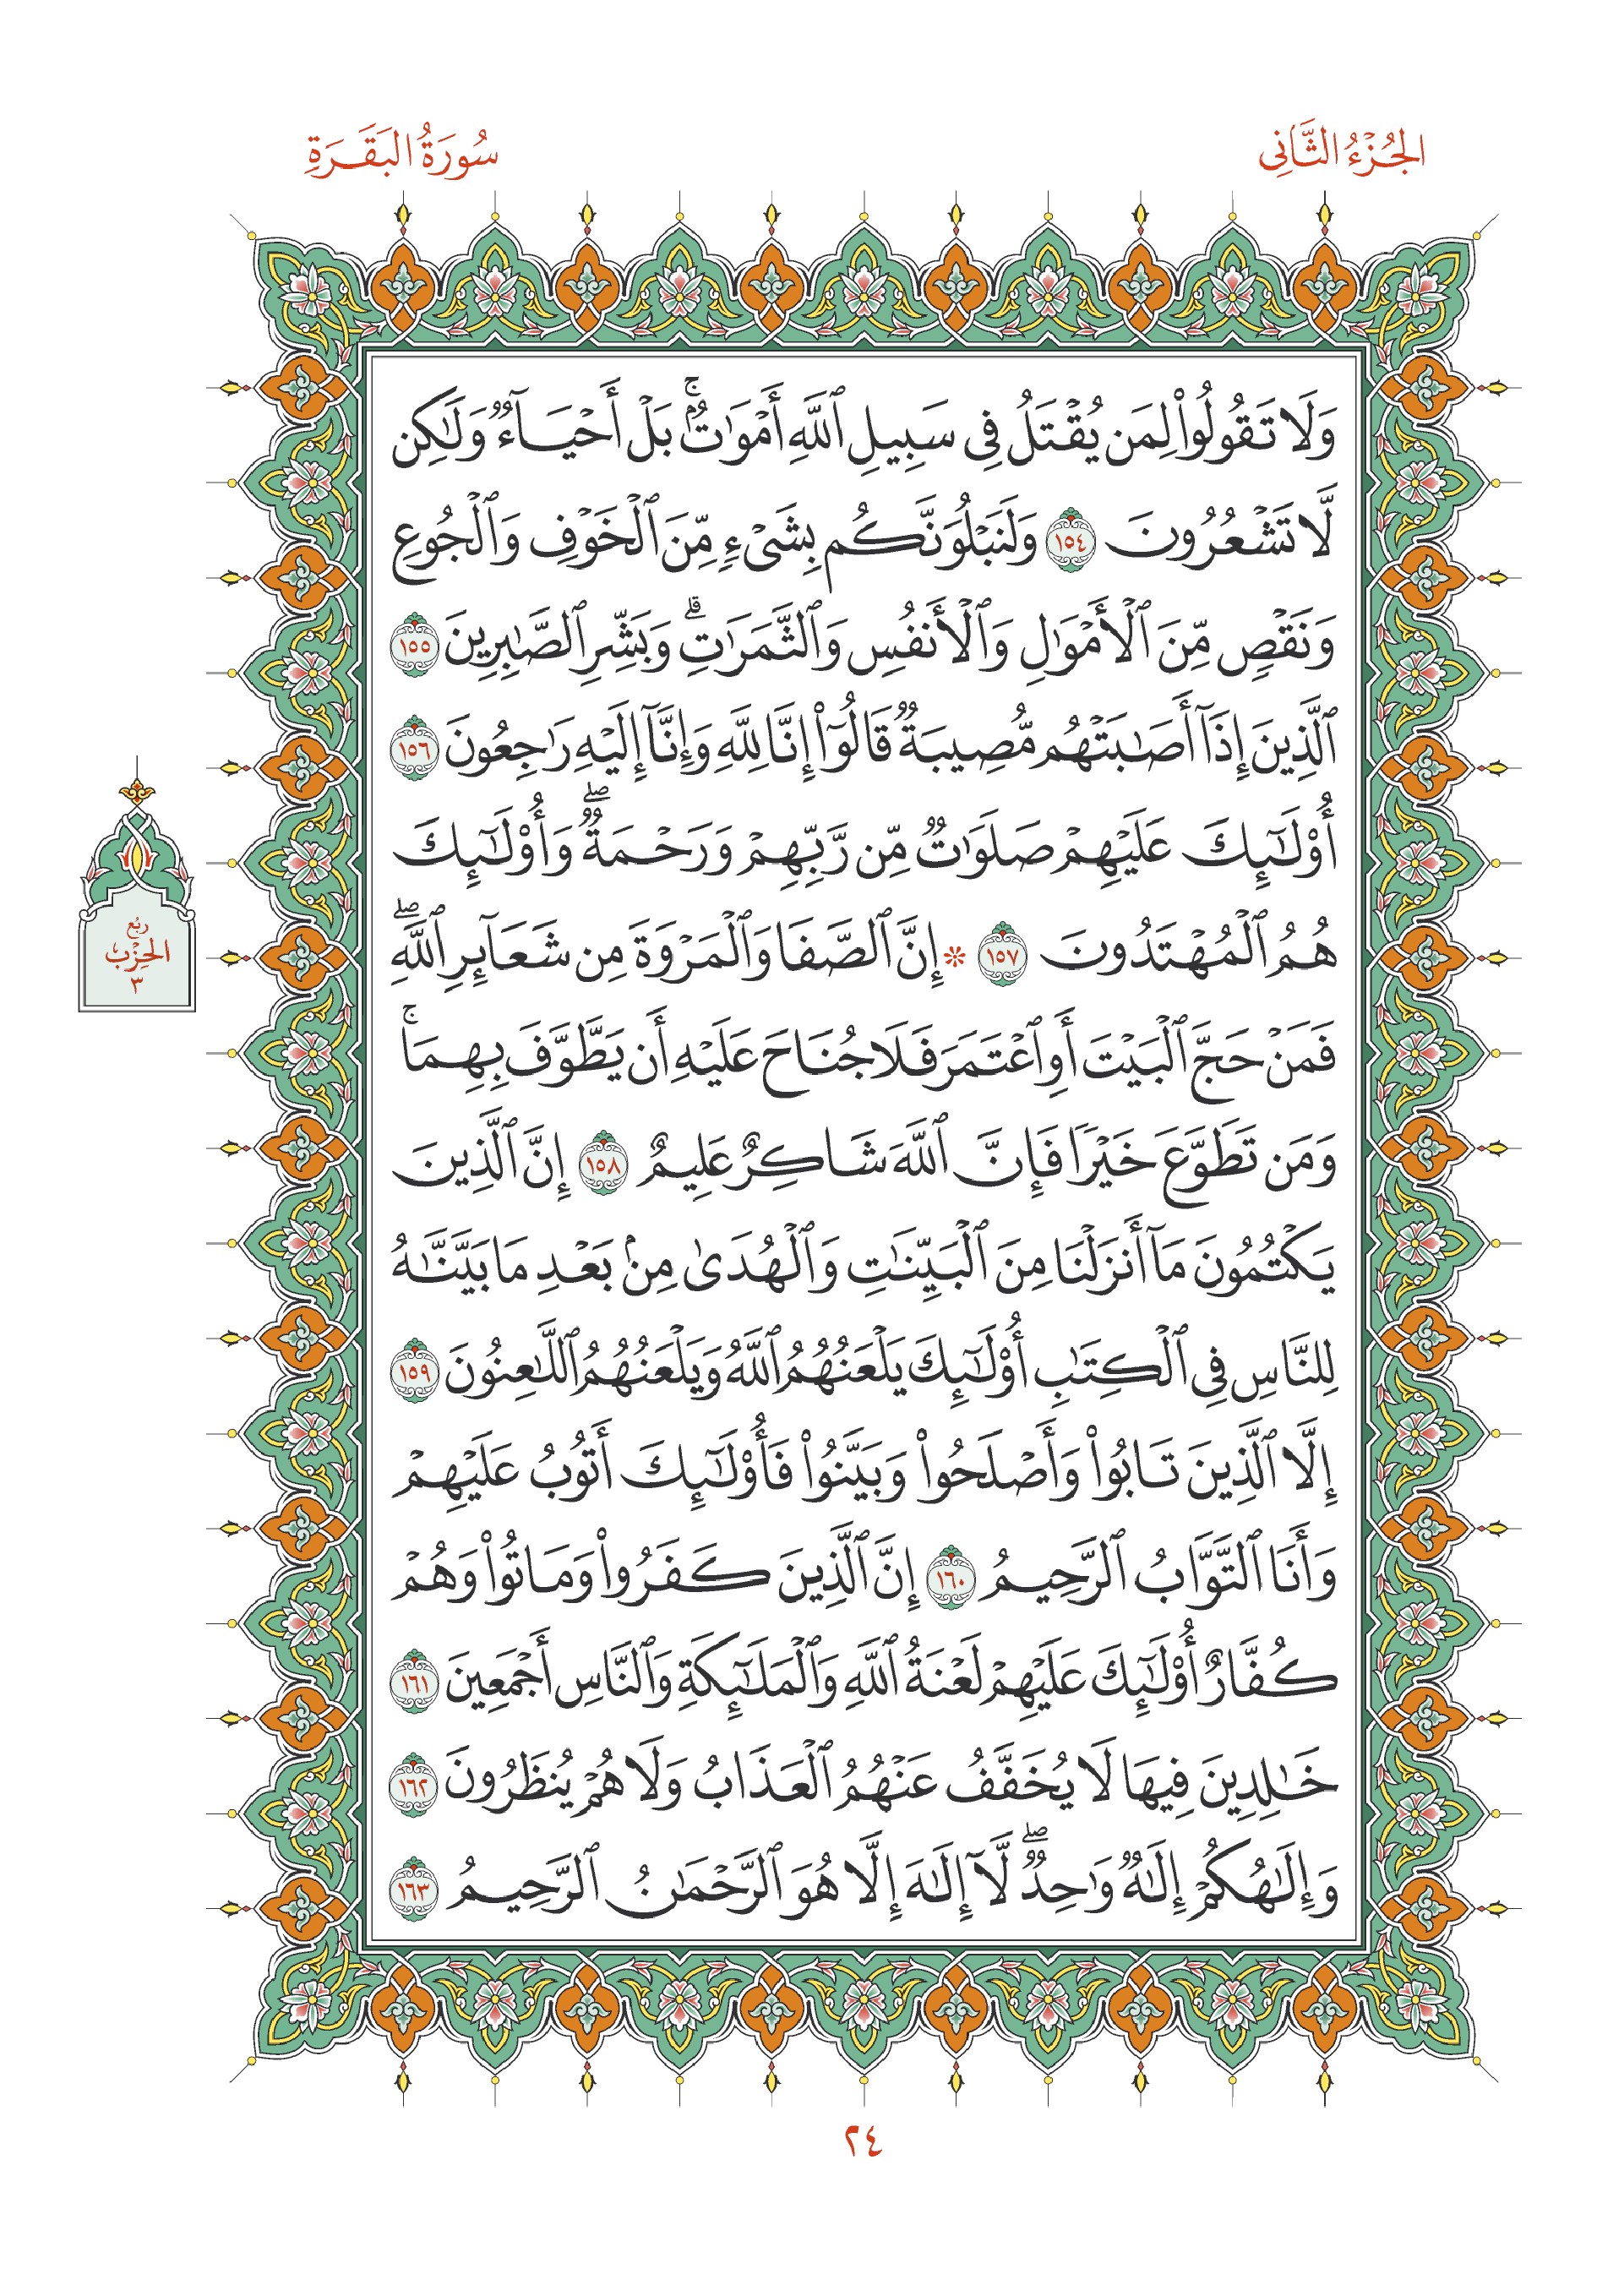 الجُزْءُ الثَّانِي
سُورَةُ البَقَرَةِ
وَلَا تَقُولُوا۟ لِمَن يُقْتَلُ فِى سَبِيلِ ٱللَّهِ أَمْوَٰتٌۢ ۚ بَلْ أَحْيَآءٌ وَلَٰكِن
لَّا تَشْعُرُونَ ١٥٤ وَلَنَبْلُوَنَّكُم بِشَىْءٍ مِّنَ ٱلْخَوْفِ وَٱلْجُوعِ
وَنَقْصٍ مِّنَ ٱلْأَمْوَٰلِ وَٱلْأَنفُسِ وَٱلثَّمَرَٰتِ ۗ وَبَشِّرِ ٱلصَّٰبِرِينَ ١٥٥
ٱلَّذِينَ إِذَآ أَصَٰبَتْهُم مُّصِيبَةٌ قَالُوٓا۟ إِنَّا لِلَّهِ وَإِنَّآ إِلَيْهِ رَٰجِعُونَ ١٥٦
أُو۟لَٰٓئِكَ عَلَيْهِمْ صَلَوَٰتٌ مِّن رَّبِّهِمْ وَرَحْمَةٌ ۖ وَأُو۟لَٰٓئِكَ
هُمُ ٱلْمُهْتَدُونَ ١٥٧ * إِنَّ ٱلصَّفَا وَٱلْمَرْوَةَ مِن شَعَآئِرِ ٱللَّهِ ۖ
فَمَنْ حَجَّ ٱلْبَيْتَ أَوِ ٱعْتَمَرَ فَلَا جُنَاحَ عَلَيْهِ أَن يَطَّوَّفَ بِهِمَا ۚ
وَمَن تَطَوَّعَ خَيْرًا فَإِنَّ ٱللَّهَ شَاكِرٌ عَلِيمٌ ١٥٨ إِنَّ ٱلَّذِينَ
يَكْتُمُونَ مَآ أَنزَلْنَا مِنَ ٱلْبَيِّنَٰتِ وَٱلْهُدَىٰ مِنۢ بَعْدِ مَا بَيَّنَّٰهُ
لِلنَّاسِ فِى ٱلْكِتَٰبِ أُو۟لَٰٓئِكَ يَلْعَنُهُمُ ٱللَّهُ وَيَلْعَنُهُمُ ٱللَّٰعِنُونَ ١٥٩
إِلَّا ٱلَّذِينَ تَابُوا۟ وَأَصْلَحُوا۟ وَبَيَّنُوا۟ فَأُو۟لَٰٓئِكَ أَتُوبُ عَلَيْهِمْ
وَأَنَا ٱلتَّوَّابُ ٱلرَّحِيمُ ١٦٠ إِنَّ ٱلَّذِينَ كَفَرُوا۟ وَمَاتُوا۟ وَهُمْ
كُفَّارٌ أُو۟لَٰٓئِكَ عَلَيْهِمْ لَعْنَةُ ٱللَّهِ وَٱلْمَلَٰٓئِكَةِ وَٱلنَّاسِ أَجْمَعِينَ ١٦١
خَٰلِدِينَ فِيهَا لَا يُخَفَّفُ عَنْهُمُ ٱلْعَذَابُ وَلَا هُمْ يُنظَرُونَ ١٦٢
وَإِلَٰهُكُمْ إِلَٰهٌ وَٰحِدٌ ۖ لَّآ إِلَٰهَ إِلَّا هُوَ ٱلرَّحْمَٰنُ ٱلرَّحِيمُ ١٦٣
ربُع
الحِزْب
٣
٢٤